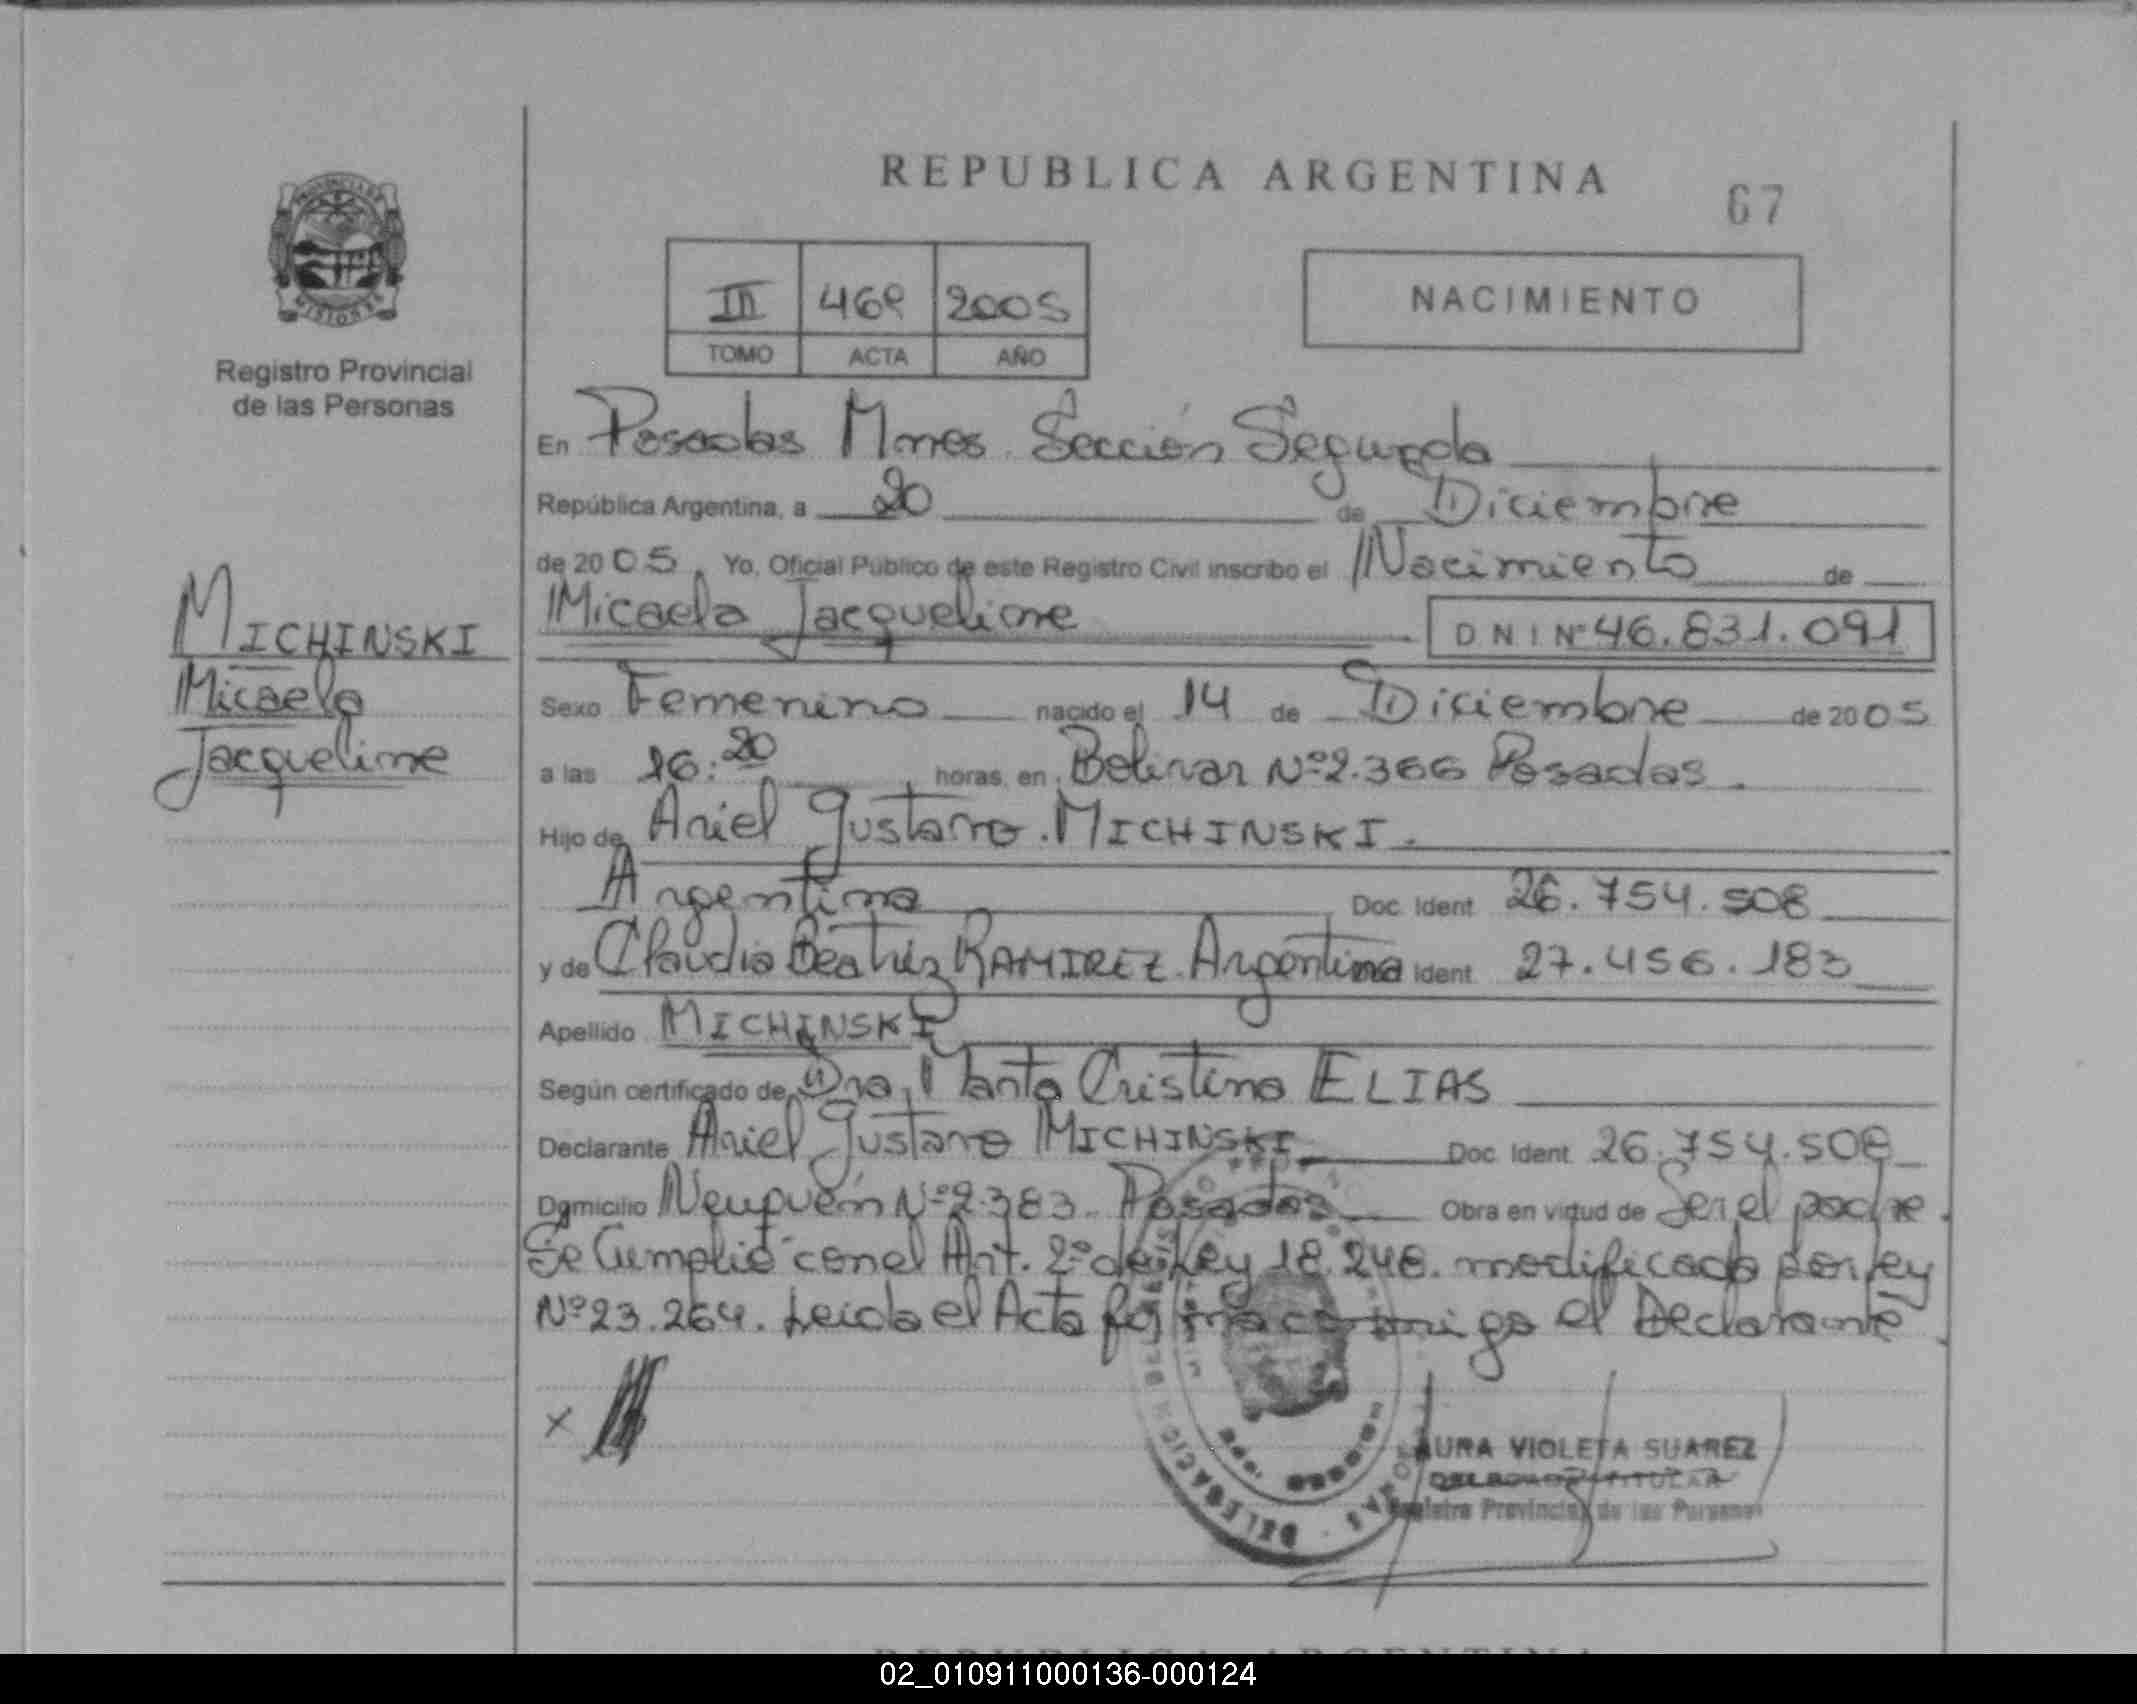 REPUBLICA ARGENTINA
67
PROVINCIA DE
MISIONES
Registro Provincial
de las Personas
III 468 2005
TOMO ACTA AÑO
NACIMIENTO
En Posadas Mnes. Sección Segunda
República Argentina, a 20 de Diciembre
de 2005. Yo, Oficial Público de este Registro Civil inscribo el Nacimiento de
Micaela Jacqueline DNI Nº 46.831.091
MICHINSKI
Micaela
Jacqueline
Sexo Femenino nacido el 14 de Diciembre de 2005
a las 16:20 horas, en Bolivar Nº 2.366 Posadas.
Hijo de Ariel Gustavo MICHINSKI.
Argentina Doc. Ident. 26.754.508
y de Claudia Beatriz RAMIREZ. Argentina Ident. 27.456.183
Apellido MICHINSKI
Según certificado de Dra. Marta Cristina ELIAS
Declarante Ariel Gustavo MICHINSKI Doc. Ident. 26.754.508
Domicilio Neuquén Nº 2.383. Posadas Obra en virtud de Ser el padre.
Se Cumplió con el Art. 2º de ley 18.248. modificado por ley
Nº 23.264. Leida el Acta firma conmigo el Declarante.
X
LAURA VIOLETA SUAREZ
DELEGADA TITULAR
Registro Provincial de las Personas
DELEGACION
REPUBLICA ARGENTINA
02_010911000136-000124